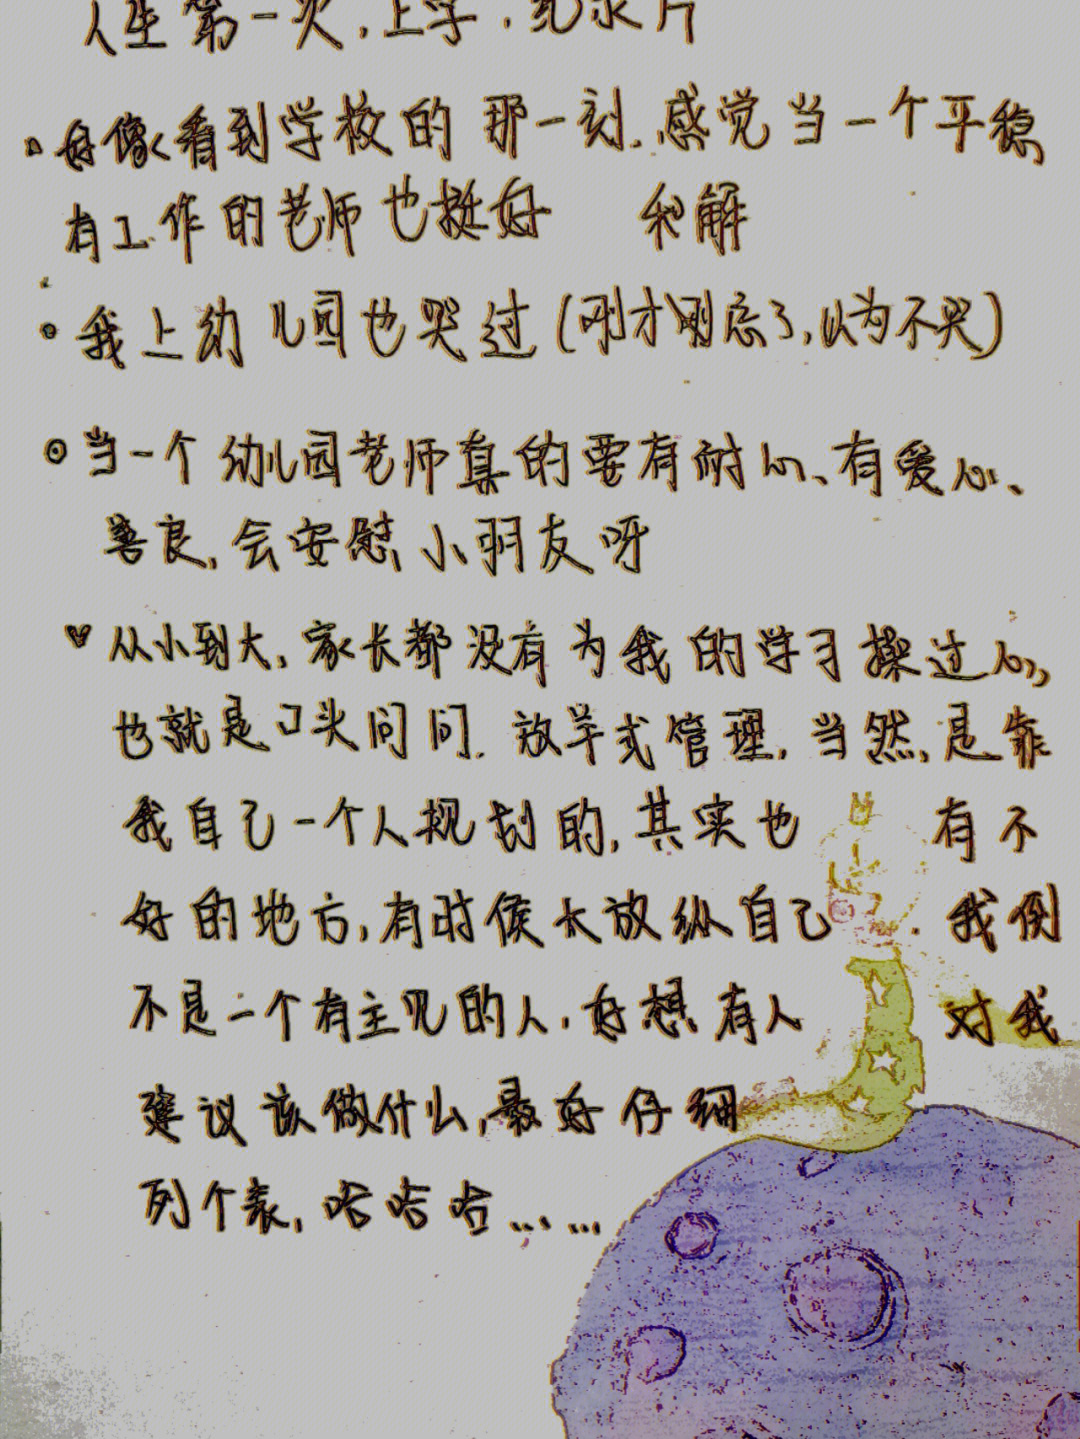 人生第一次,上学.纪录片
好像看到学校的那一刻.感觉当一个平稳
有工作的老师也挺好 和解
我上幼儿园也哭过(刚才刚忘了,以为不哭)
当一个幼儿园老师真的要有耐心、有爱心、
善良,会安慰小朋友呀
从小到大,家长都没有为我的学习操过心,
也就是口头问问.放羊式管理,当然,是靠
我自己一个人规划的,其实也有不
好的地方,有时候太放纵自己.我倒
不是一个有主见的人.好想有人对我
建议该做什么,最好仔细
列个表,哈哈哈……